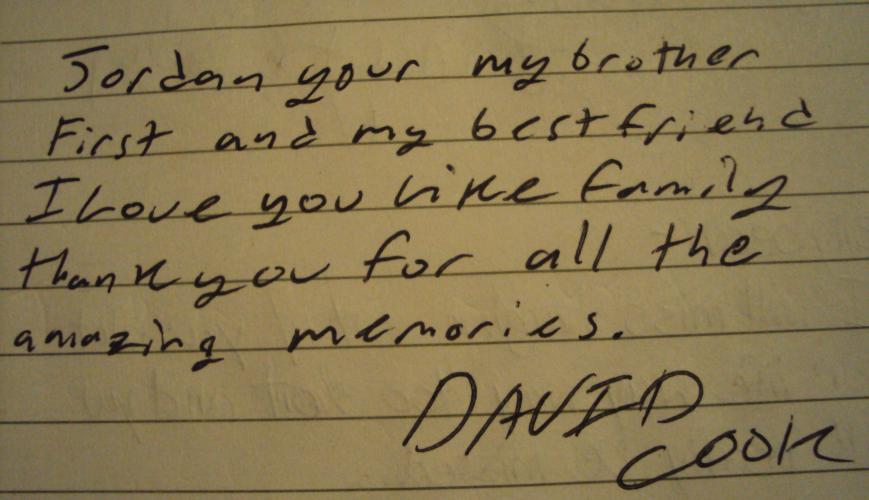 Jordan your my brother
First and my best friend
I Love you like family
thank you for all the
amazing memories.
DAVID
COOK